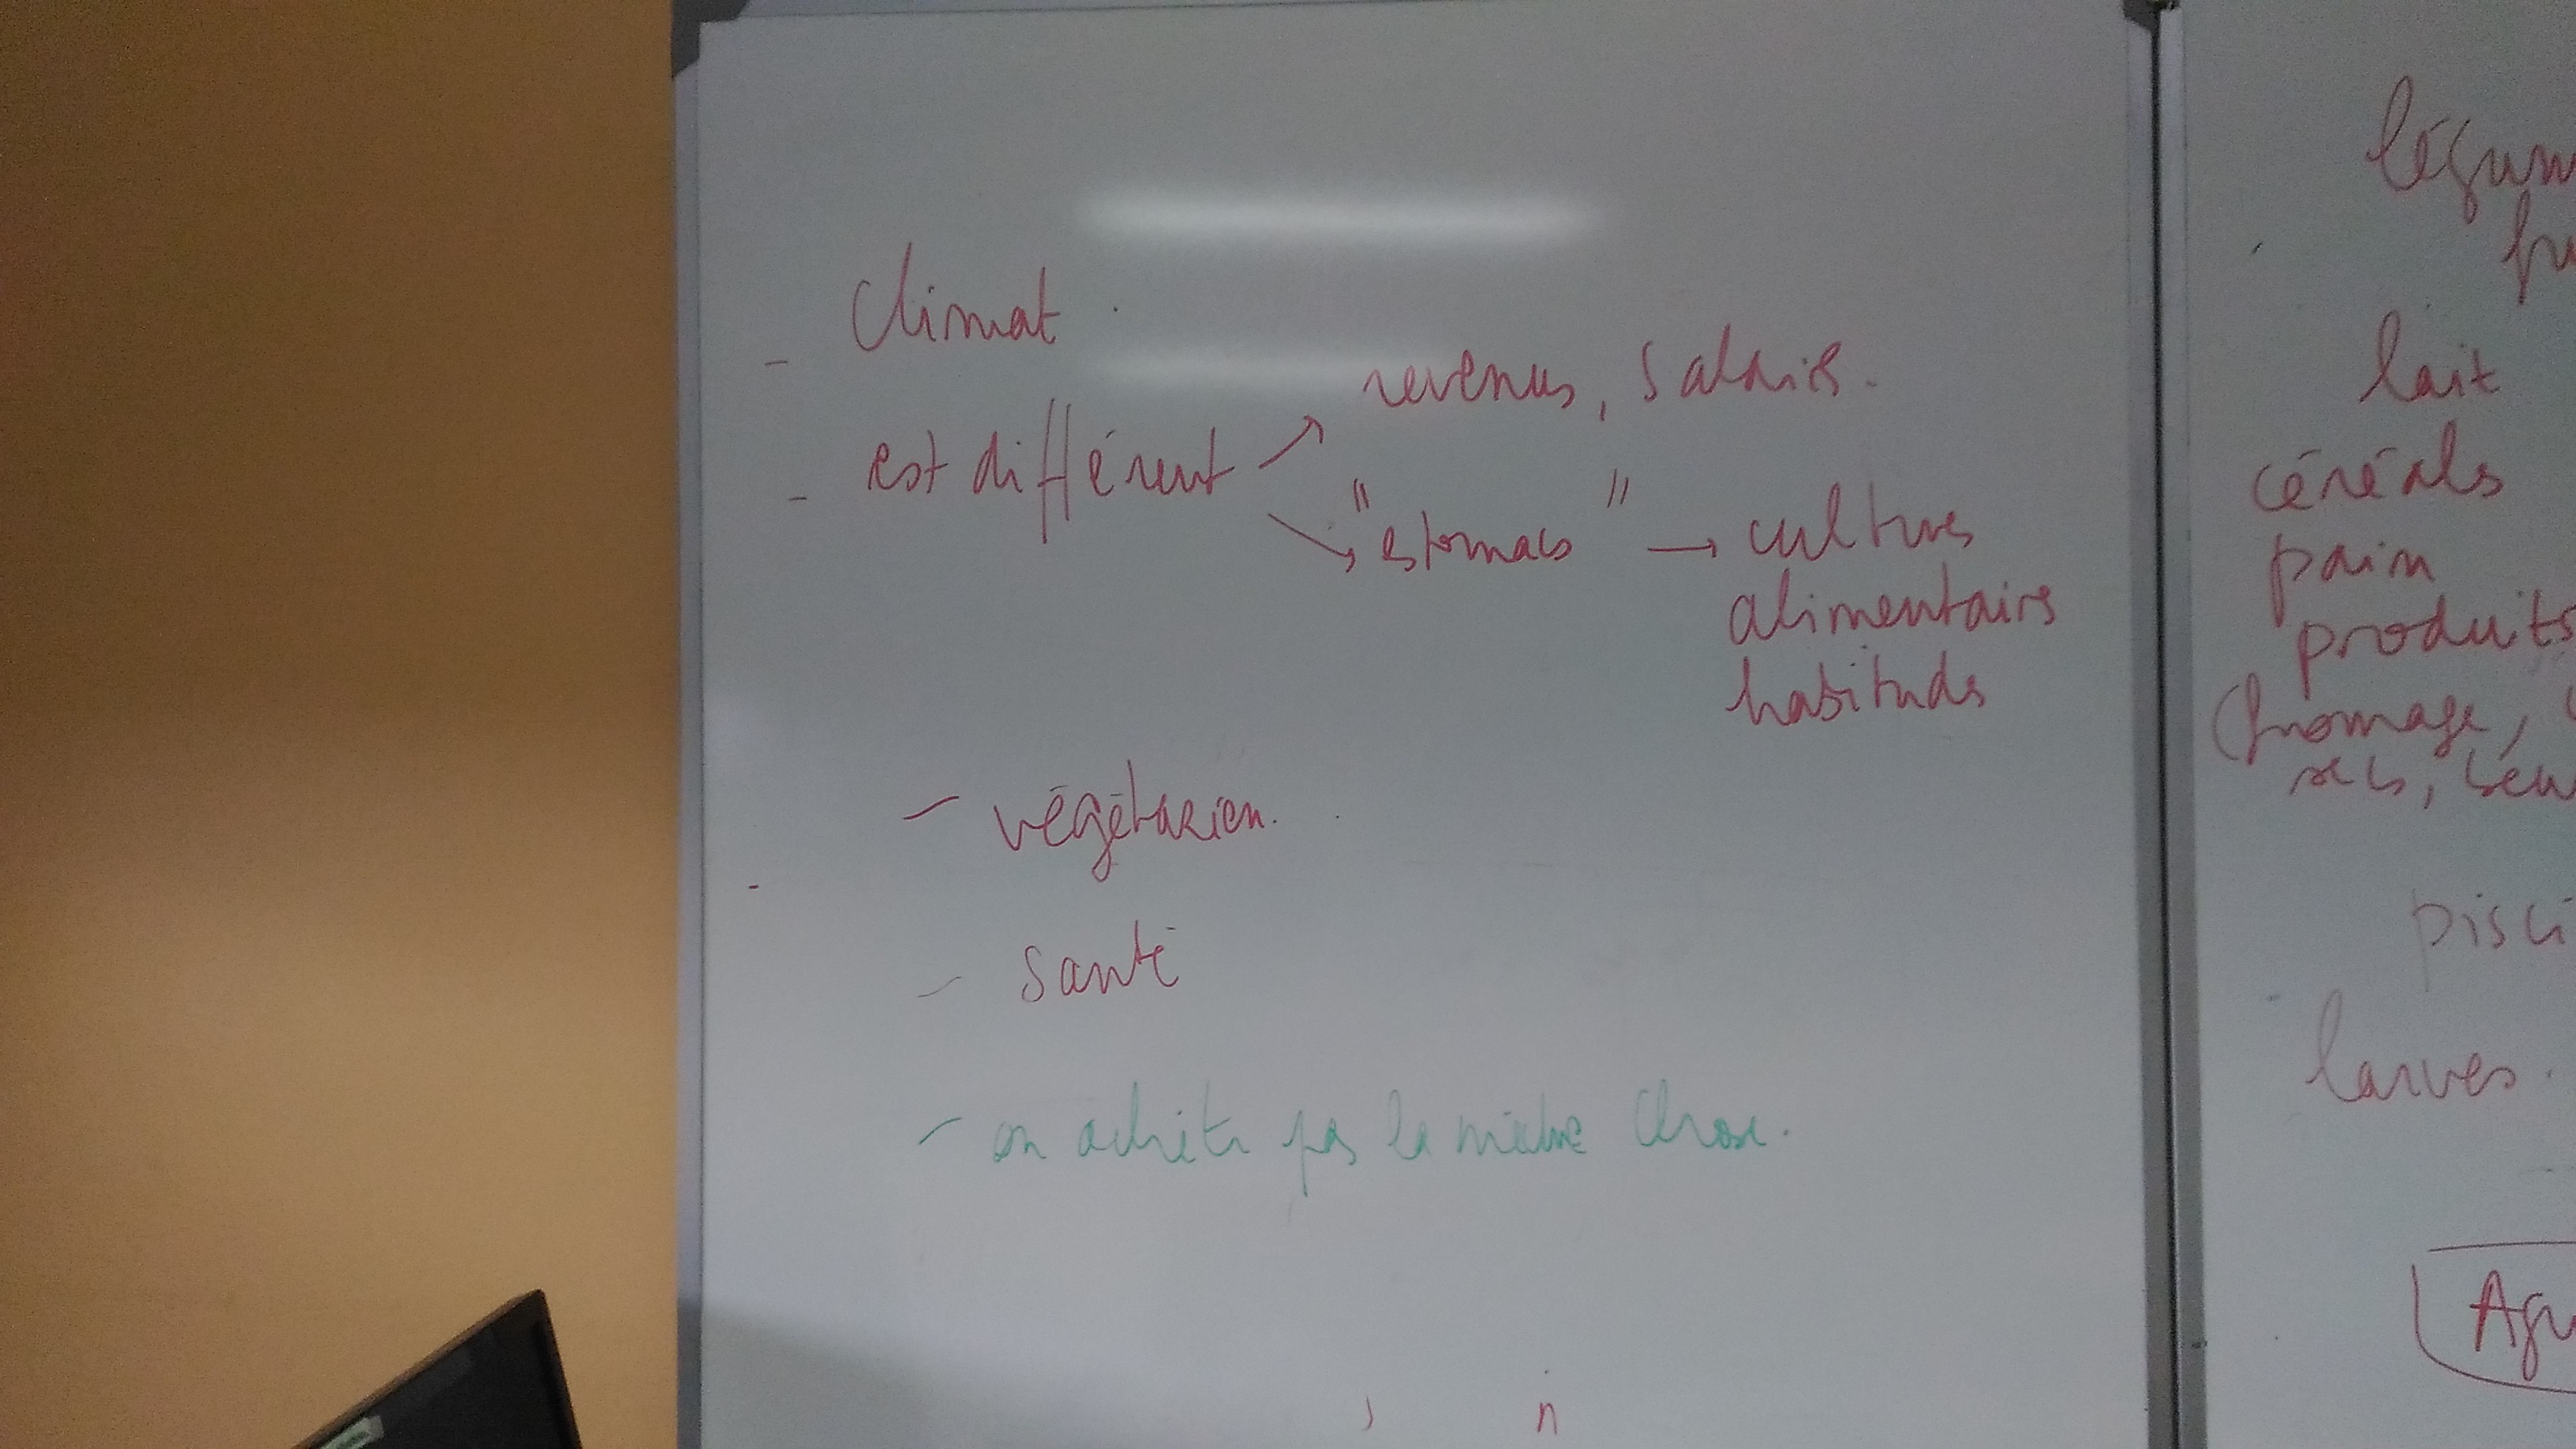 - Climat
- est différent ↗ revenus, salaires.
↘ "estomacs" → cultures
alimentaires
habitudes
- végétarien.
- santé
- on achète pas la même chose.
lait
céréales
pain
produits
(fromage,
secs,
larves.